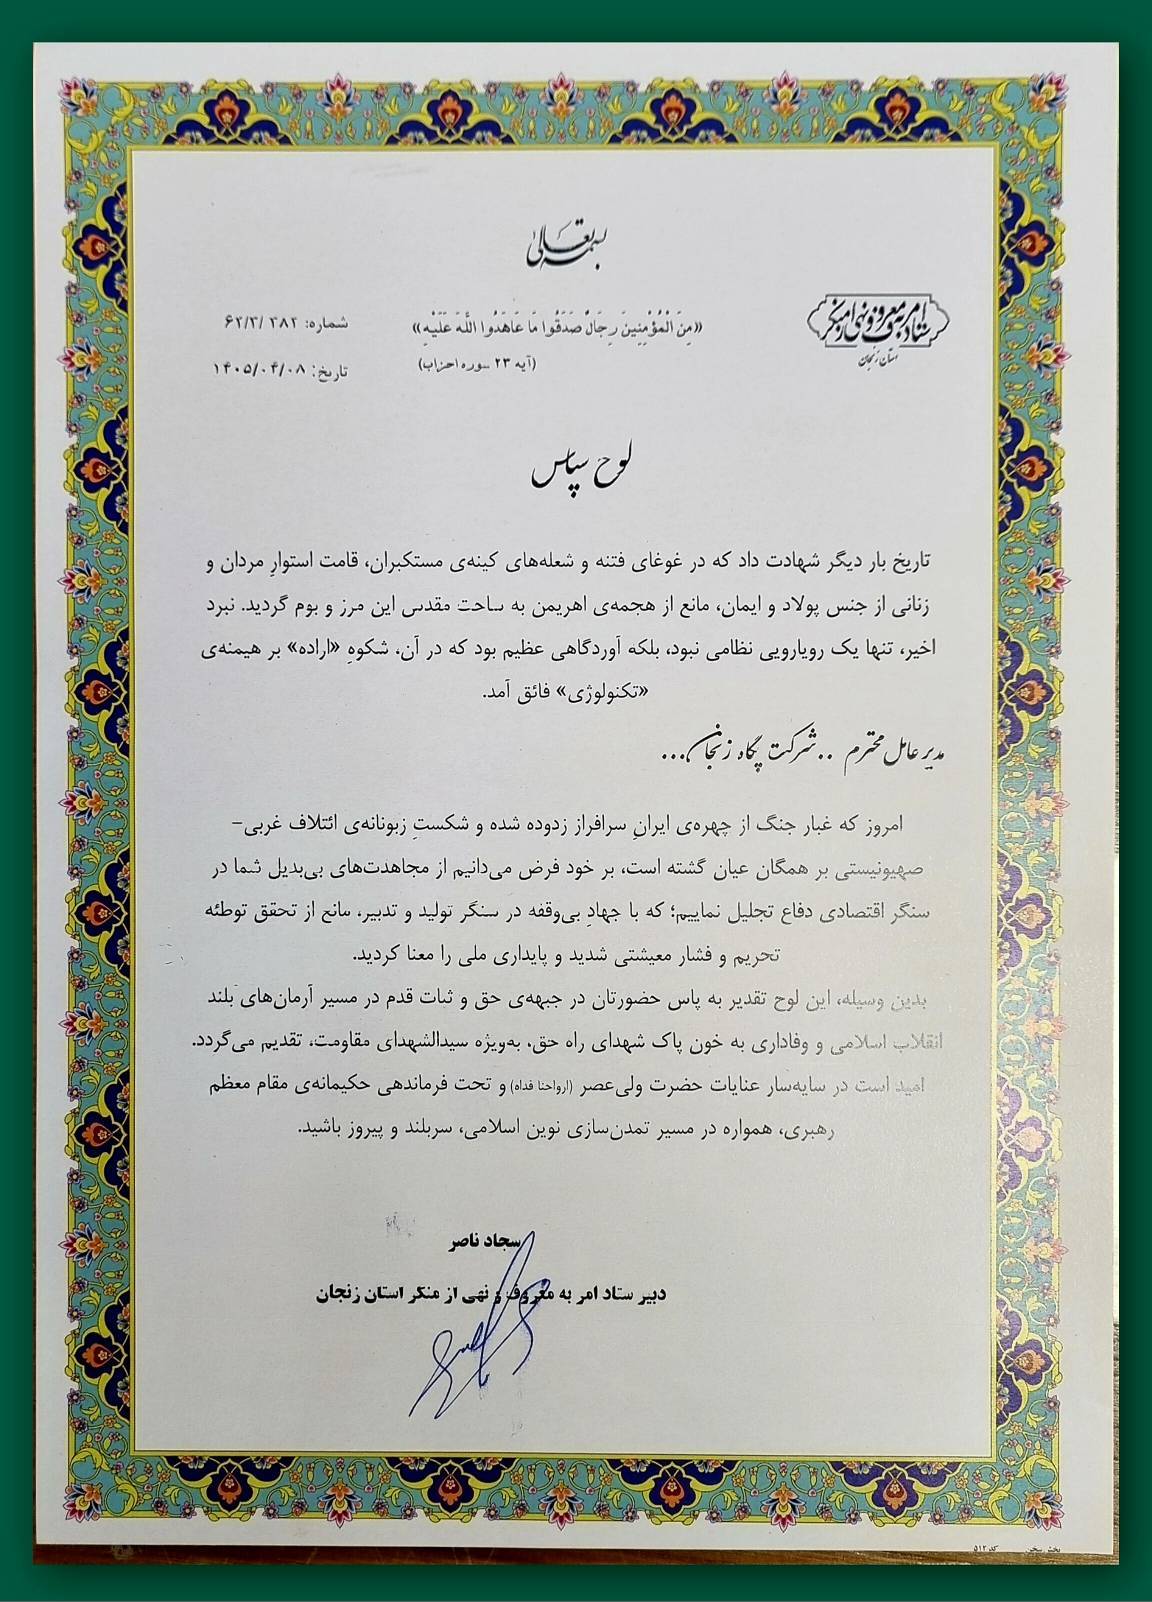 بسمه تعالی
ستاد امر به معروف و نهی از منکر
استان زنجان
«مِنَ الْمُؤْمِنِینَ رِجَالٌ صَدَقُوا مَا عَاهَدُوا اللَّهَ عَلَیْهِ»
(آیه ۲۳ سوره احزاب)
شماره: ۶۲/۳/ ۳۸۲
تاریخ: ۱۴۰۵/۰۴/۰۸
لوح سپاس
تاریخ بار دیگر شهادت داد که در غوغای فتنه و شعله‌های کینه‌ی مستکبران، قامت استوارِ مردان و
زنانی از جنس پولاد و ایمان، مانع از هجمه‌ی اهریمن به ساحت مقدس این مرز و بوم گردید. نبرد
اخیر، تنها یک رویارویی نظامی نبود، بلکه آوردگاهی عظیم بود که در آن، شکوهِ «اراده» بر هیمنه‌ی
«تکنولوژی» فائق آمد.
مدیر عامل محترم ..شرکت پگاه زنجان...
امروز که غبار جنگ از چهره‌ی ایرانِ سرافراز زدوده شده و شکستِ زبونانه‌ی ائتلاف غربی–
صهیونیستی بر همگان عیان گشته است، بر خود فرض می‌دانیم از مجاهدت‌های بی‌بدیل شما در
سنگر اقتصادی دفاع تجلیل نماییم؛ که با جهادِ بی‌وقفه در سنگر تولید و تدبیر، مانع از تحقق توطئه
تحریم و فشار معیشتی شدید و پایداری ملی را معنا کردید.
بدین وسیله، این لوح تقدیر به پاس حضورتان در جبهه‌ی حق و ثبات قدم در مسیر آرمان‌های بلند
انقلاب اسلامی و وفاداری به خون پاک شهدای راه حق، به‌ویژه سیدالشهدای مقاومت، تقدیم می‌گردد.
امید است در سایه‌سار عنایات حضرت ولی‌عصر (ارواحنا فداه) و تحت فرماندهی حکیمانه‌ی مقام معظم
رهبری، همواره در مسیر تمدن‌سازی نوین اسلامی، سربلند و پیروز باشید.
سجاد ناصر
دبیر ستاد امر به معروف و نهی از منکر استان زنجان
پخش سخن کد ۵۱۲